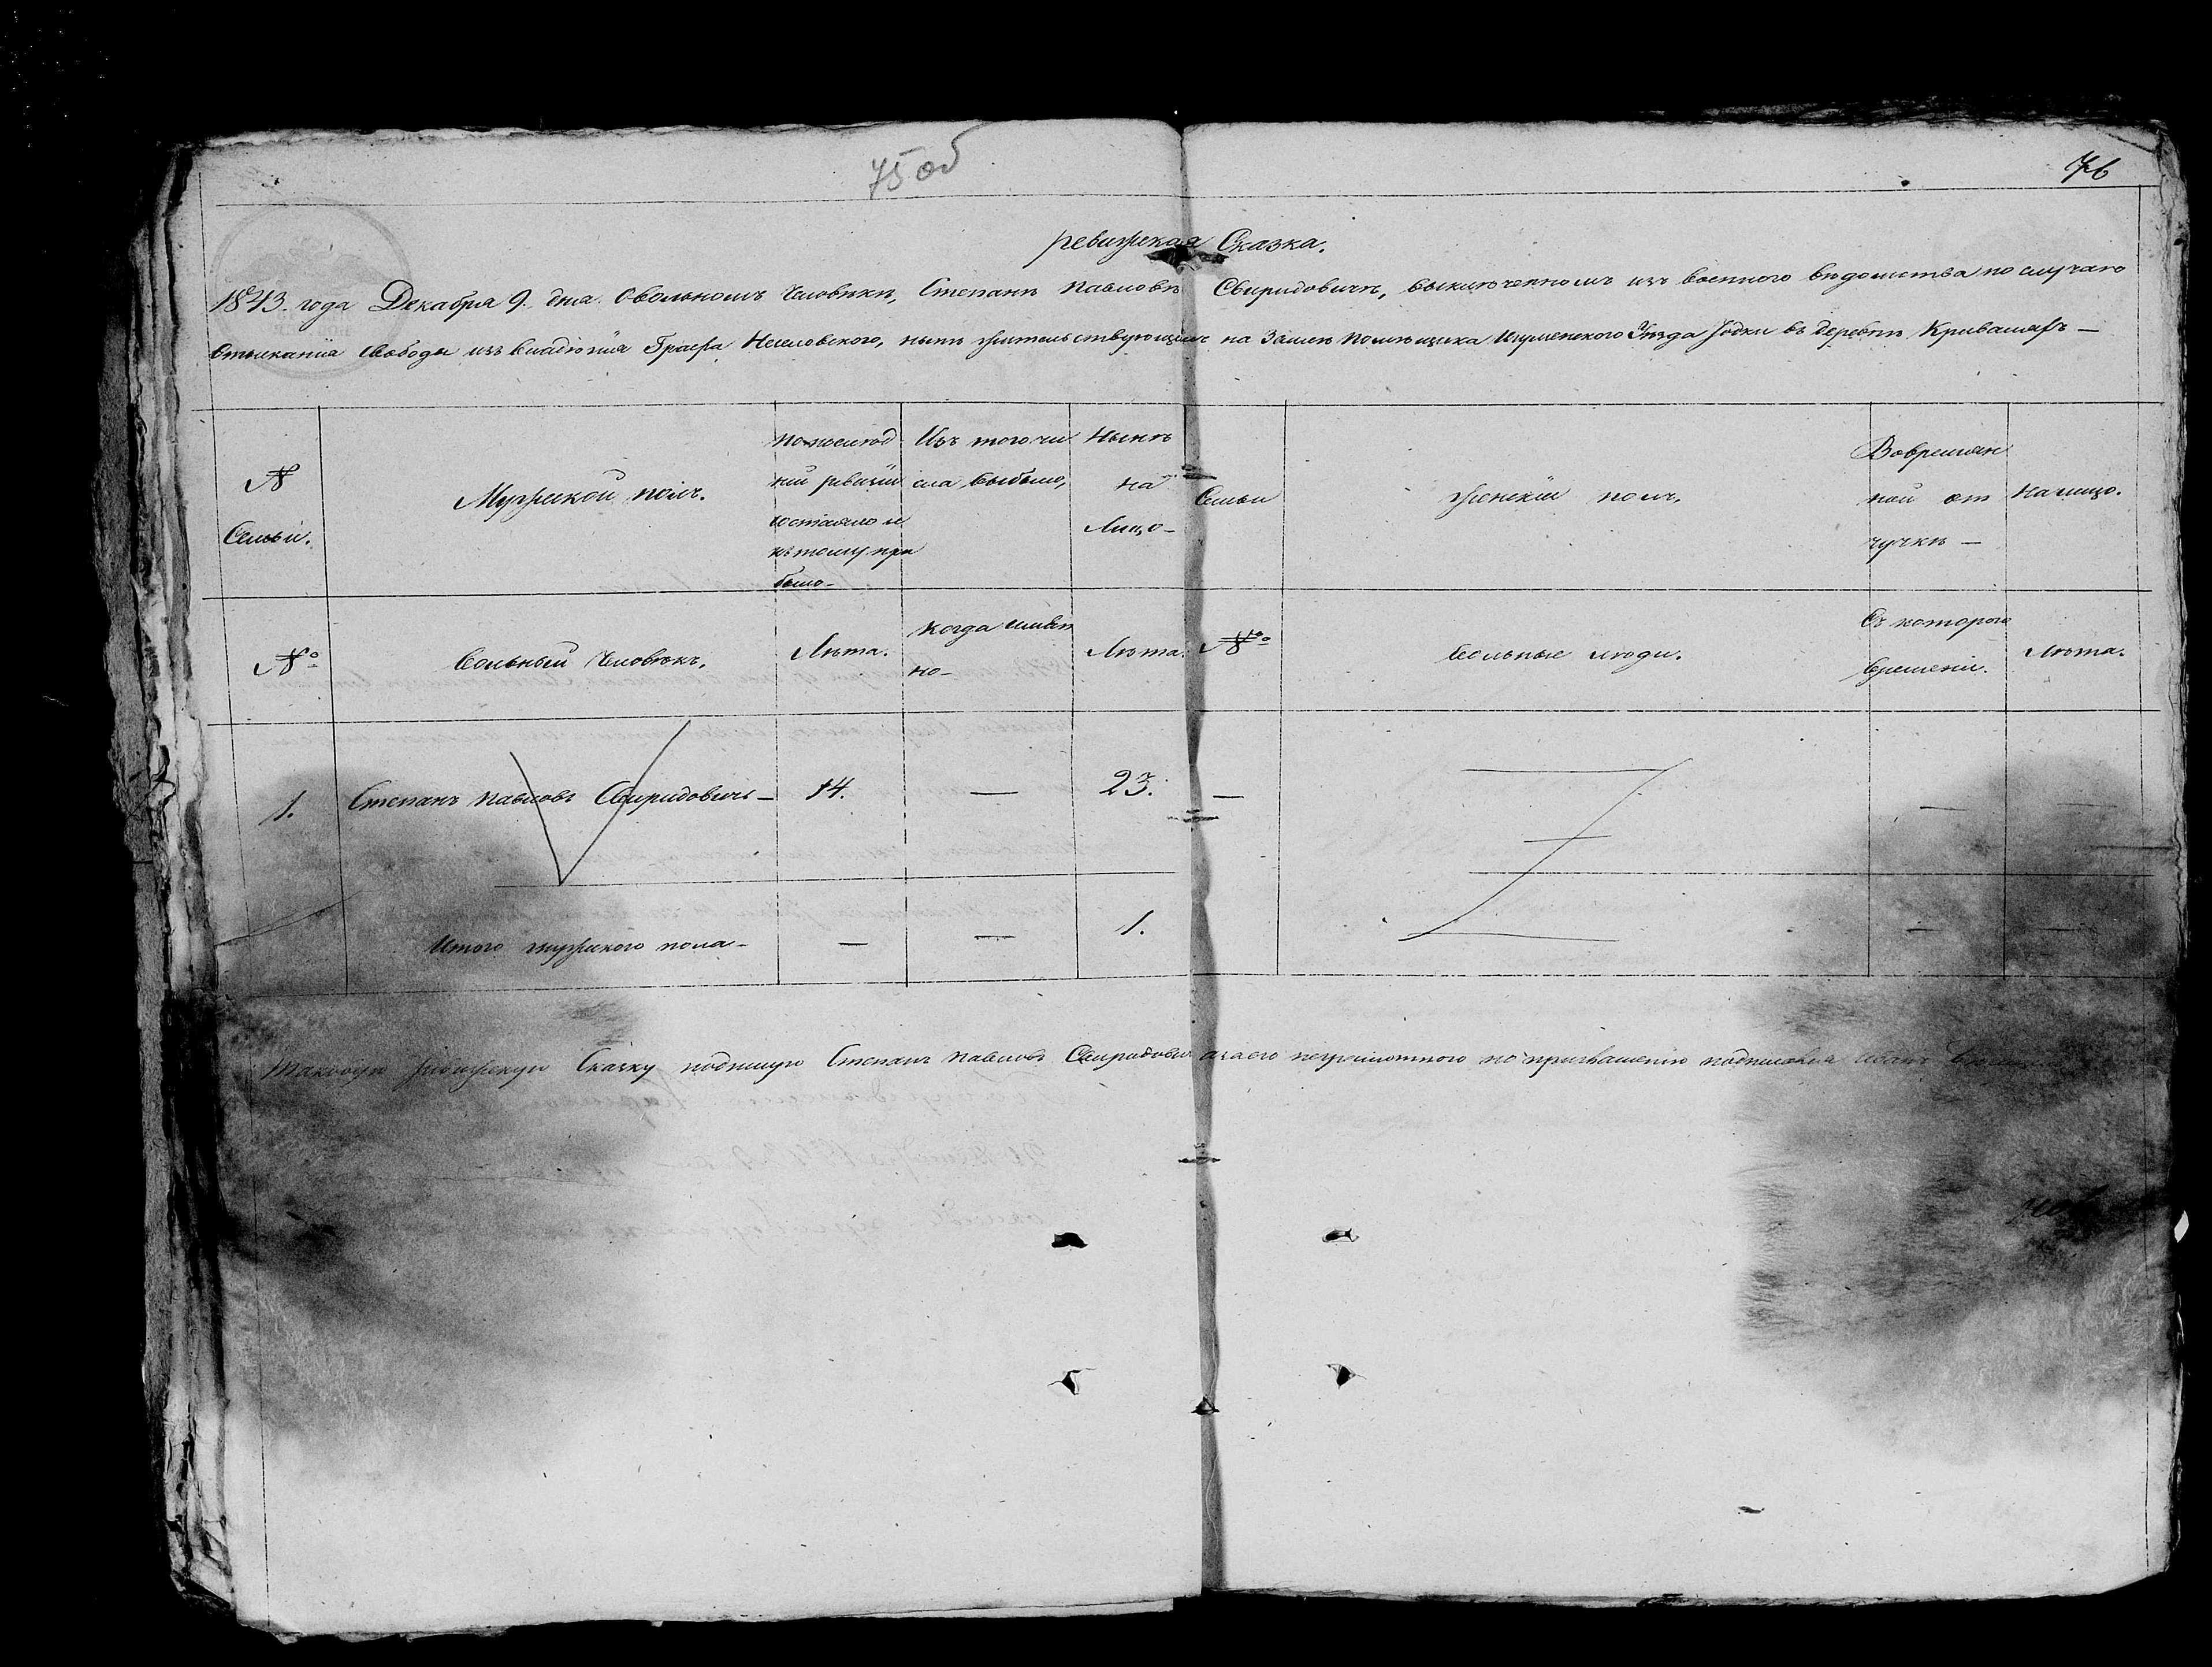 75 об
76
ревизская Сказка.
1843. года Декабря 9. дня. О вольномъ Человѣкѣ, Степанѣ Павловѣ Свиридовичѣ, выключенномъ изъ военного вѣдомства по случаю
отысканія свободы изъ владѣнія Графа Несіловского, нынѣ жительствующимъ на Землѣ Помѣщика Игуменского Уѣзда Іодки въ деревнѣ —
№ Семьи.
Мужеской полъ.
по послѣд
ней ревизіи
состояло и
къ тому при
было –
Изъ того чи
сла выбыло,
Нынѣ
на
Лицо –
Семьи
Женскій полъ.
Во времян
ной от
лучкѣ —
На лицо.
№о
Вольный Человѣкъ.
Лѣта.
Когда имян
но –
Лѣта.
№о
Вольные люди.
Съ которого
времени.
Лѣта.
1. Степанъ Павловъ Свиридовичъ – 14. — 23. — — —
Итого мужеского пола – — — 1. — —
Таковую Ревизскую Сказку подписую Степанъ Павловъ Свиридовичъ а за его неграмотного по приглашенію подписался